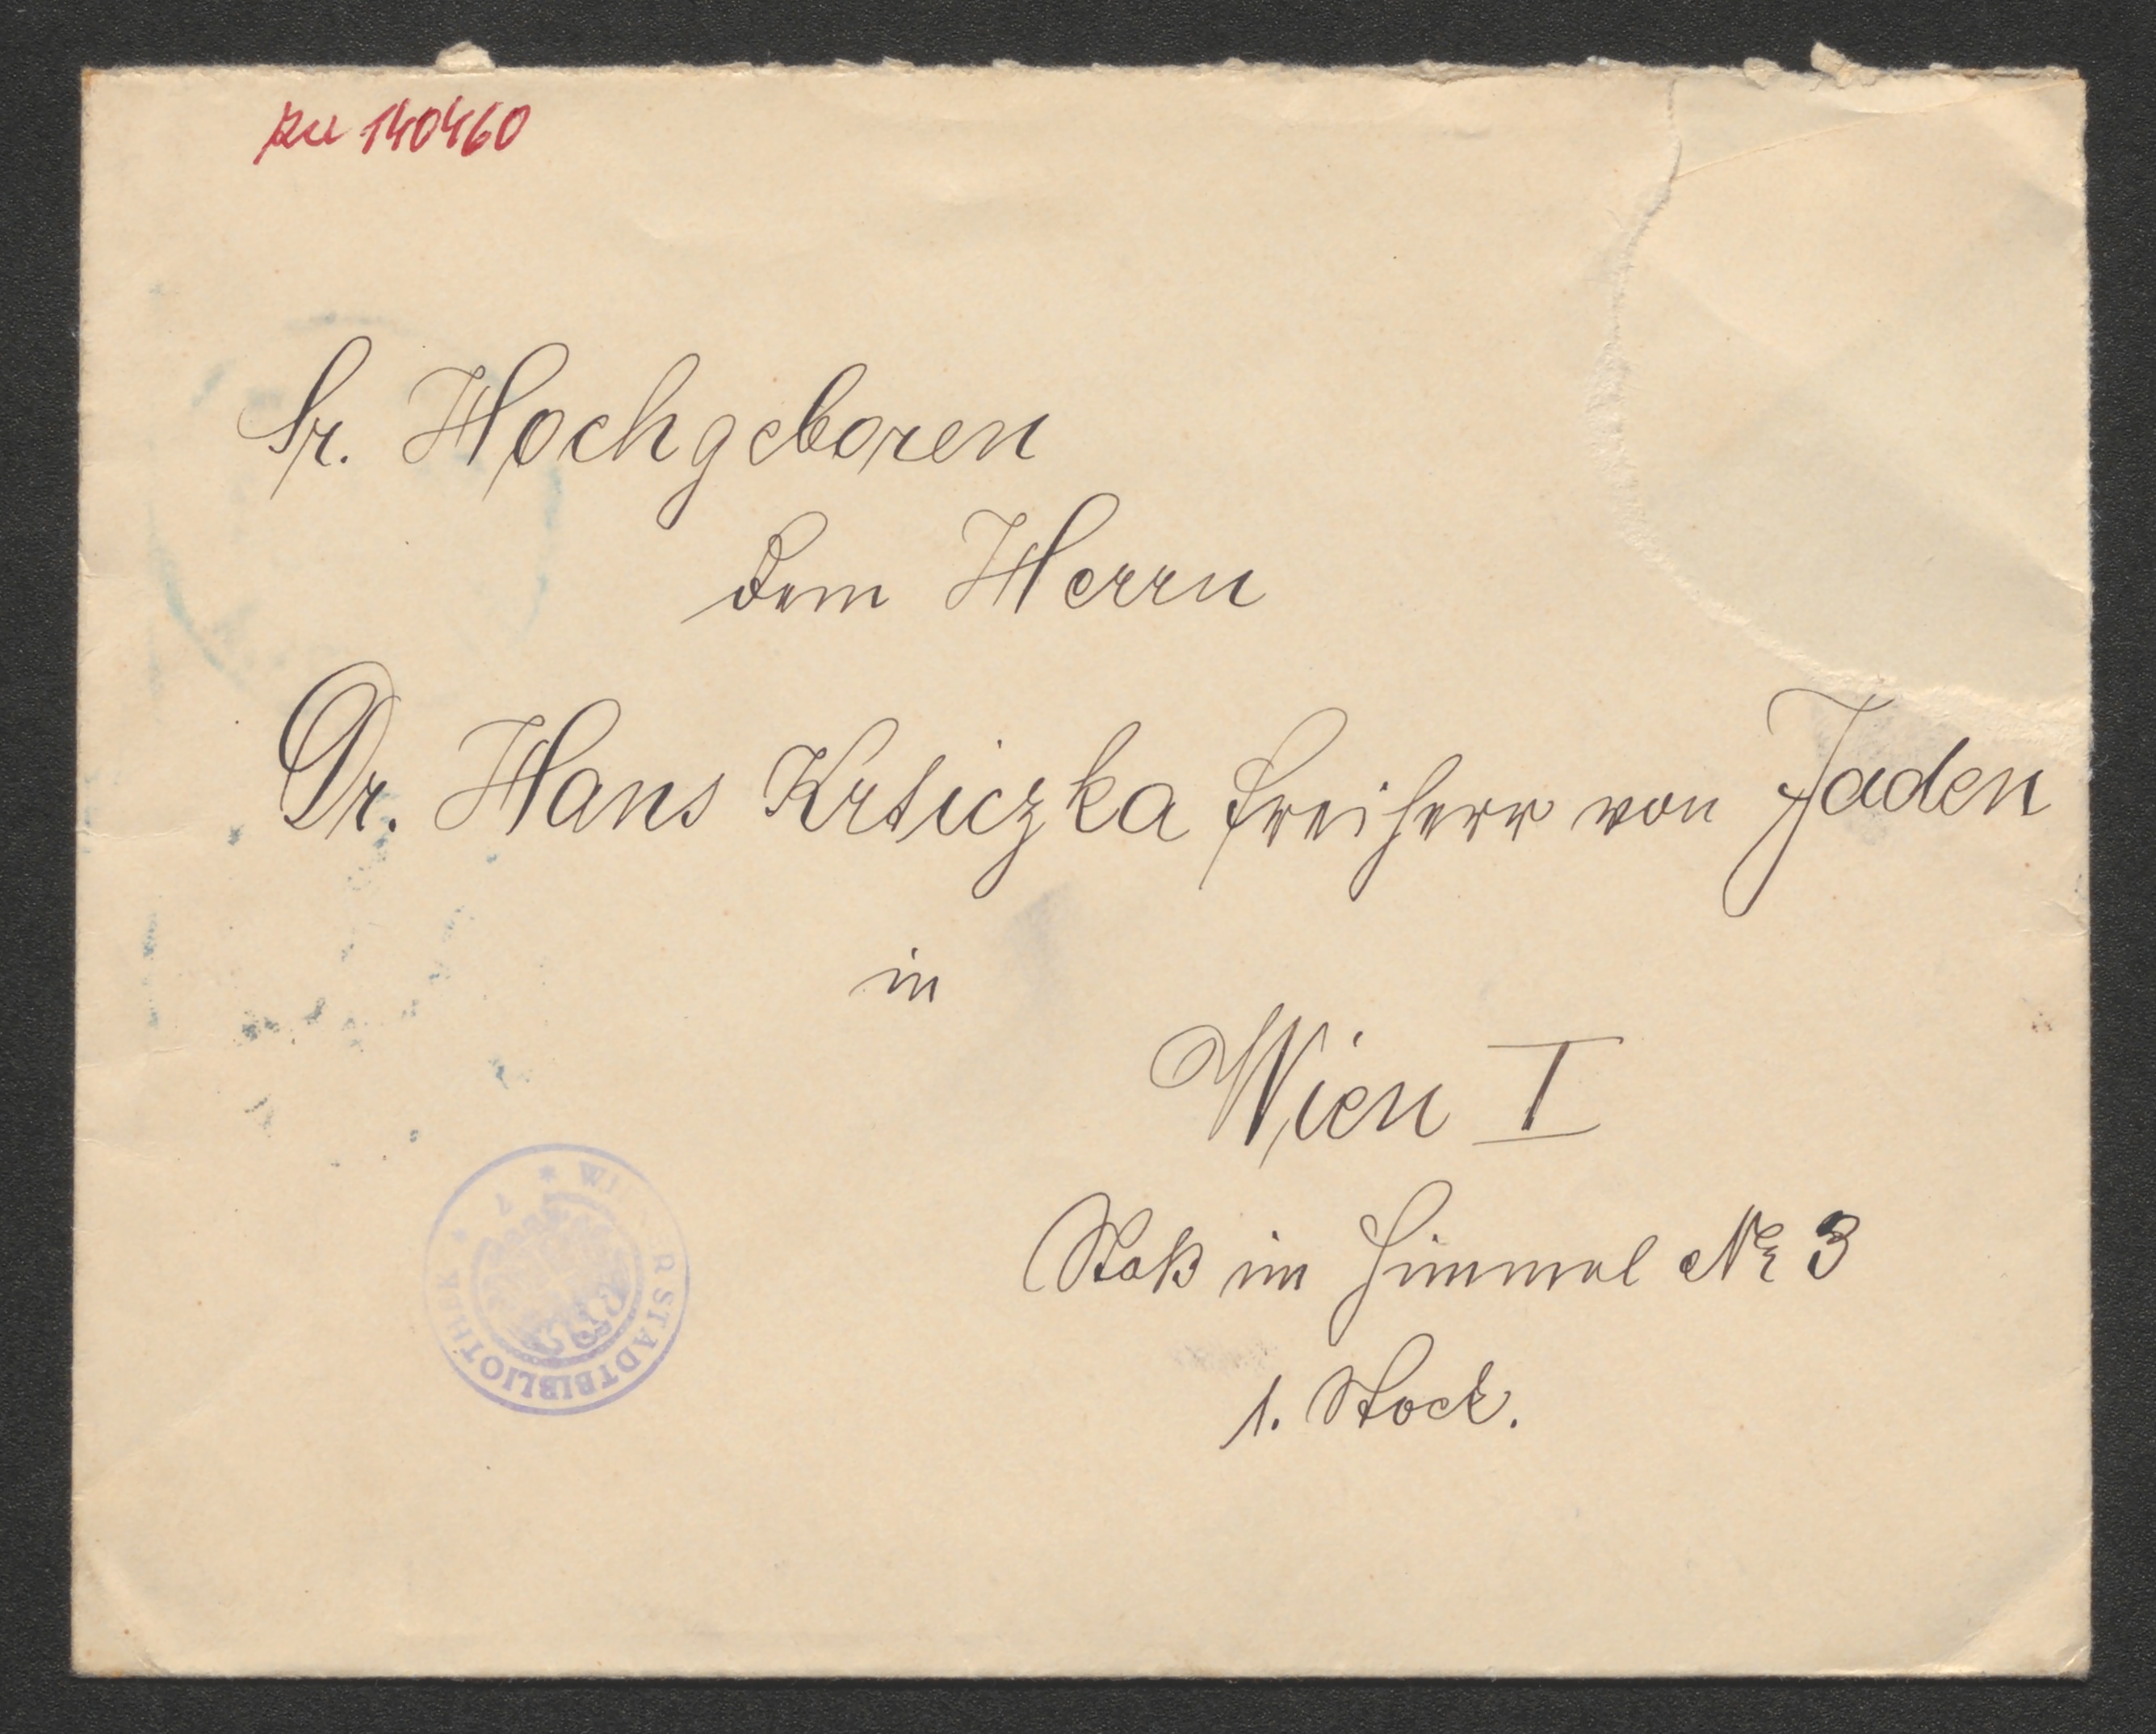 zu 140460
Sr. Hochgeboren
dem Herrn
Dr. Hans Krticzka Freiherr von Jaden
in
Wien I
Stoß im Himmel No 3
1. Stock.
WIENER STADTBIBLIOTHEK